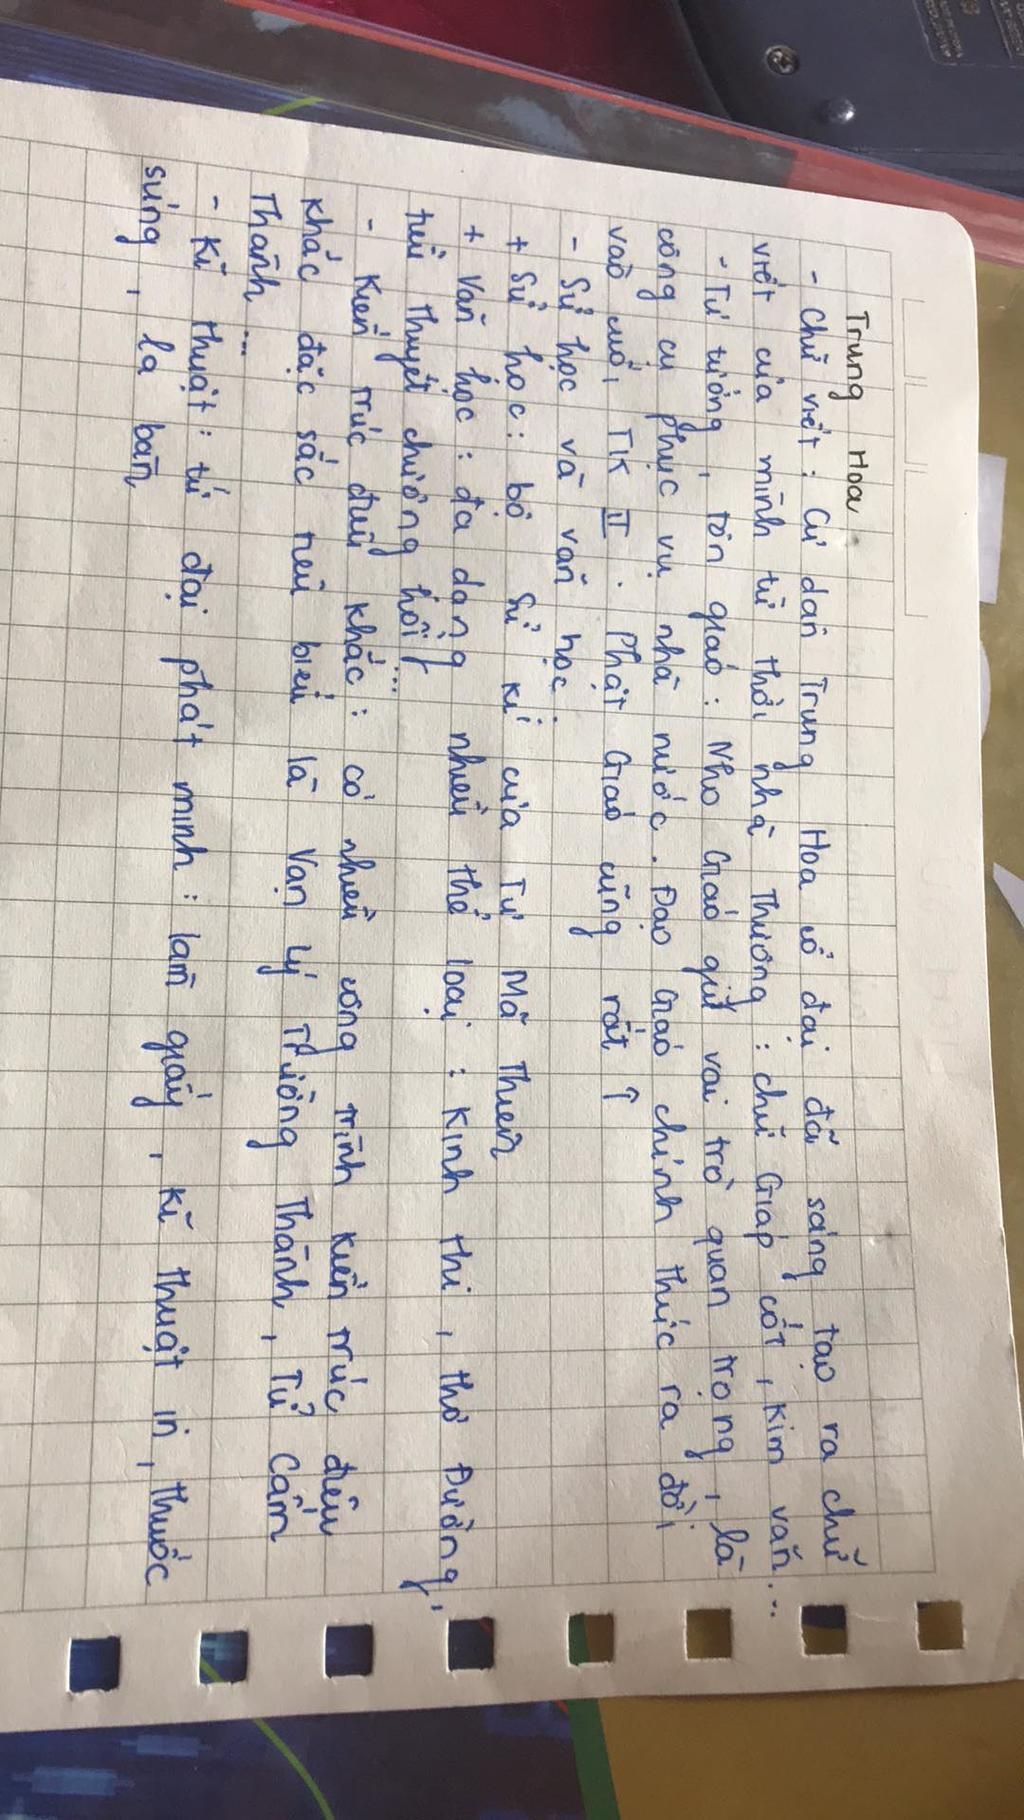 Trung Hoa
- Chữ viết : Cư dân Trung Hoa cổ đại đã sáng tạo ra chữ
viết của mình từ thời nhà Thương : chữ Giáp cốt, Kim văn...
- Tư tưởng, tôn giáo : Nho Giáo giữ vai trò quan trọng, là
công cụ phục vụ nhà nước. Đạo Giáo chính thức ra đời
vào cuối TK II. Phật Giáo cũng rất ↑
- Sử học và văn học:
+ Sử học : bộ Sử kí của Tư Mã Thiên
+ Văn học : đa dạng nhiều thể loại : Kinh thi, thơ Đường,
tiểu thuyết chương hồi,...
- Kiến trúc điêu khắc : có nhiều công trình kiến trúc điêu
khắc đặc sắc tiêu biểu là Vạn Lý Trường Thành, Tử Cấm
Thành...
- Kĩ thuật : tứ đại phát minh : làm giấy, kĩ thuật in, thuốc
súng, la bàn,